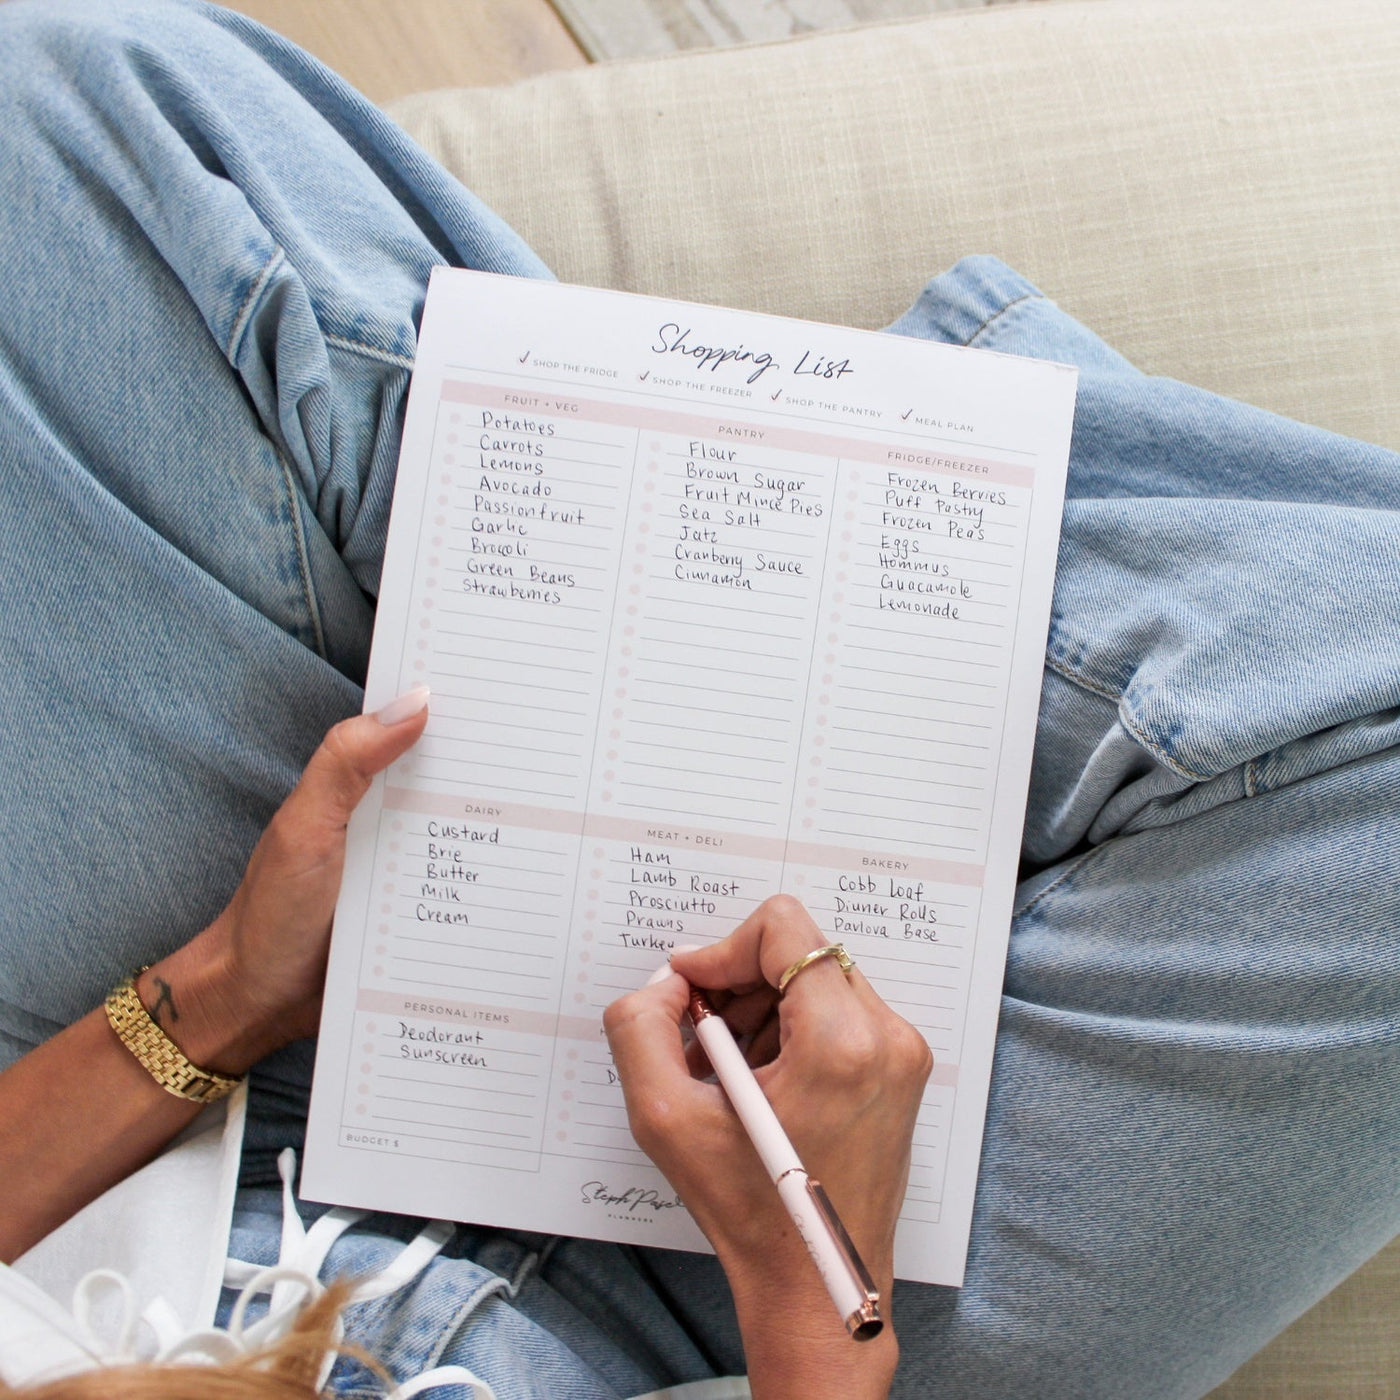 Shopping List
✓ SHOP THE FRIDGE ✓ SHOP THE FREEZER ✓ SHOP THE PANTRY ✓ MEAL PLAN
FRUIT + VEG
Potatoes
Carrots
Lemons
Avocado
Passionfruit
Garlic
Brocoli
Green Beans
Strawberries
PANTRY
Flour
Brown Sugar
Fruit Mince Pies
Sea Salt
Jatz
Cranberry Sauce
Cinnamon
FRIDGE/FREEZER
Frozen Berries
Puff Pastry
Frozen Peas
Eggs
Hommus
Guacamole
Lemonade
DAIRY
Custard
Brie
Butter
Milk
Cream
MEAT + DELI
Ham
Lamb Roast
Prosciutto
Prawns
Turkey
BAKERY
Cobb Loaf
Dinner Rolls
Pavlova Base
PERSONAL ITEMS
Deodorant
Sunscreen
BUDGET $
Steph
PLANNERS